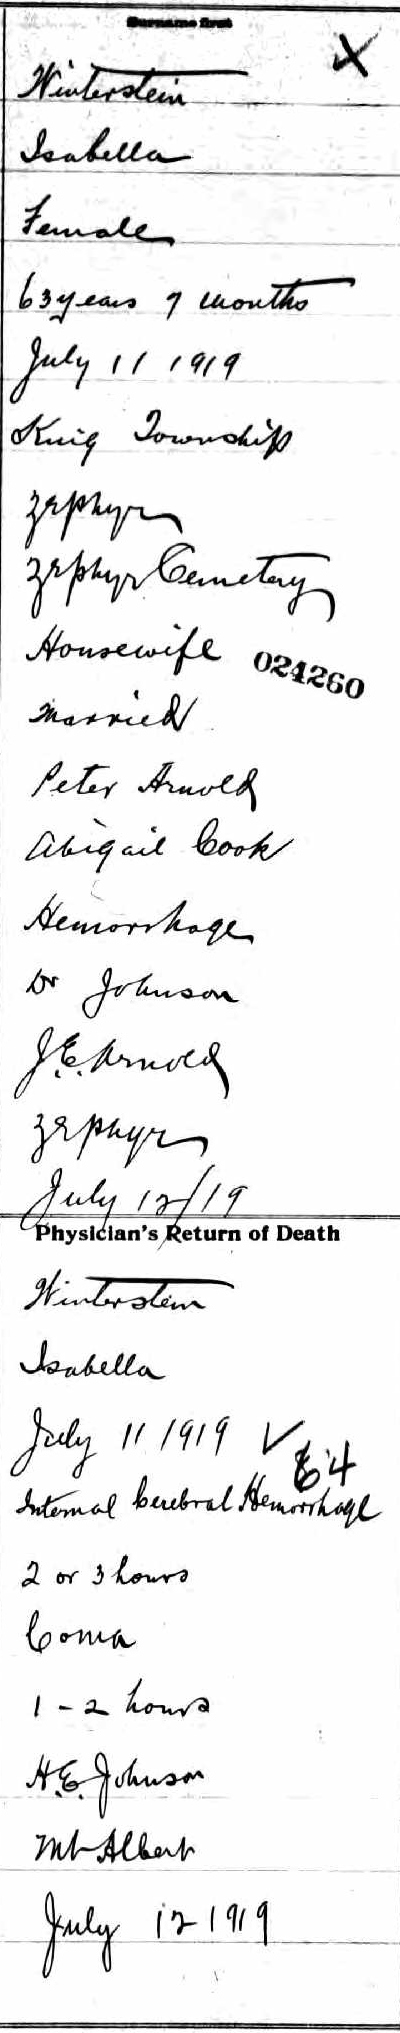 Surname first
Winterstein
Isabella
Female
63 years 7 months
July 11 1919
King Township
Zephyr
Zephyr Cemetery
Housewife 024260
Married
Peter Arnold
Abigail Cook
Hemorrhage
Dr Johnson
J.E. Arnold
Zephyr
July 12/19
Physician's Return of Death
Winterstein
Isabella
July 11 1919
64
Internal Cerebral Hemorrhage
2 or 3 hours
Coma
1 - 2 hours
H.E. Johnson
Mt Albert
July 12 1919